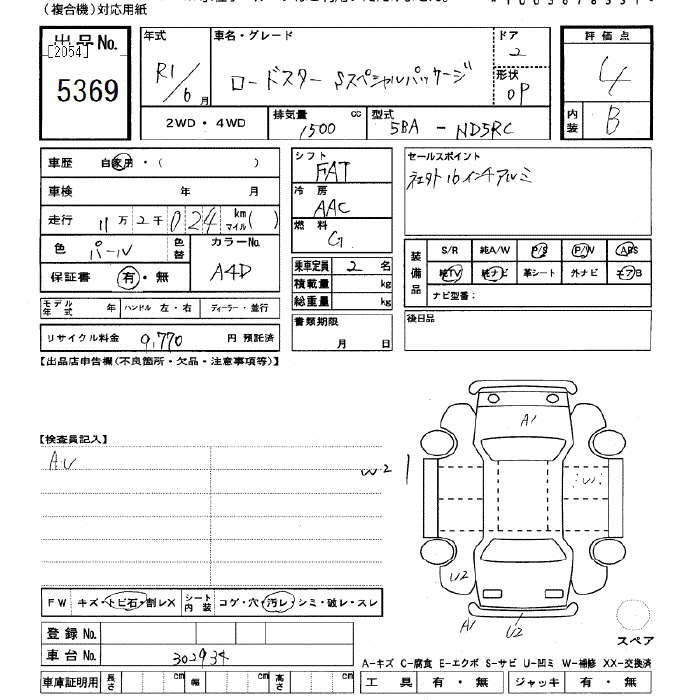 (複合機)対応用紙
出品No. [2054] 5369
年式 R1/6月
車名・グレード ロードスター Sスペシャルパッケージ
ドア 2
形状 OP
評価点 4
内装 B
2WD・4WD
排気量 1500 cc
型式 5BA - ND5RC
車歴 自家用・( )
車検 年 月
走行 11万2千024 km マイル( )
色 パール 色替 カラーNo. A4D
保証書 有・無
シフト FAT
冷房 AAC
燃料 G
乗車定員 2 名
積載量 kg
総重量 kg
書類期限 月 日
セールスポイント
16インチアルミ
装備品 S/R 純A/W P/S P/W ABS
純TV 純ナビ 革シート 外ナビ エアB
ナビ型番:
後日品
モデル年式 年 ハンドル 左・右 ディーラー・並行
リサイクル料金 9,770 円 預託済
【出品店申告欄(不良箇所・欠品・注意事項等)】
【検査員記入】
AU
W2
A1
W1
U2
A1
U2
スペア
FW キズ・トビ石・割レX シート内装 コゲ・穴・汚レ・シミ・破レ・スレ
登録No.
車台No. 302934
A-キズ C-腐食 E-エクボ S-サビ U-凹ミ W-補修 XX-交換済
車庫証明用 長さ cm 幅 cm 高さ cm
工具 有・無 ジャッキ 有・無